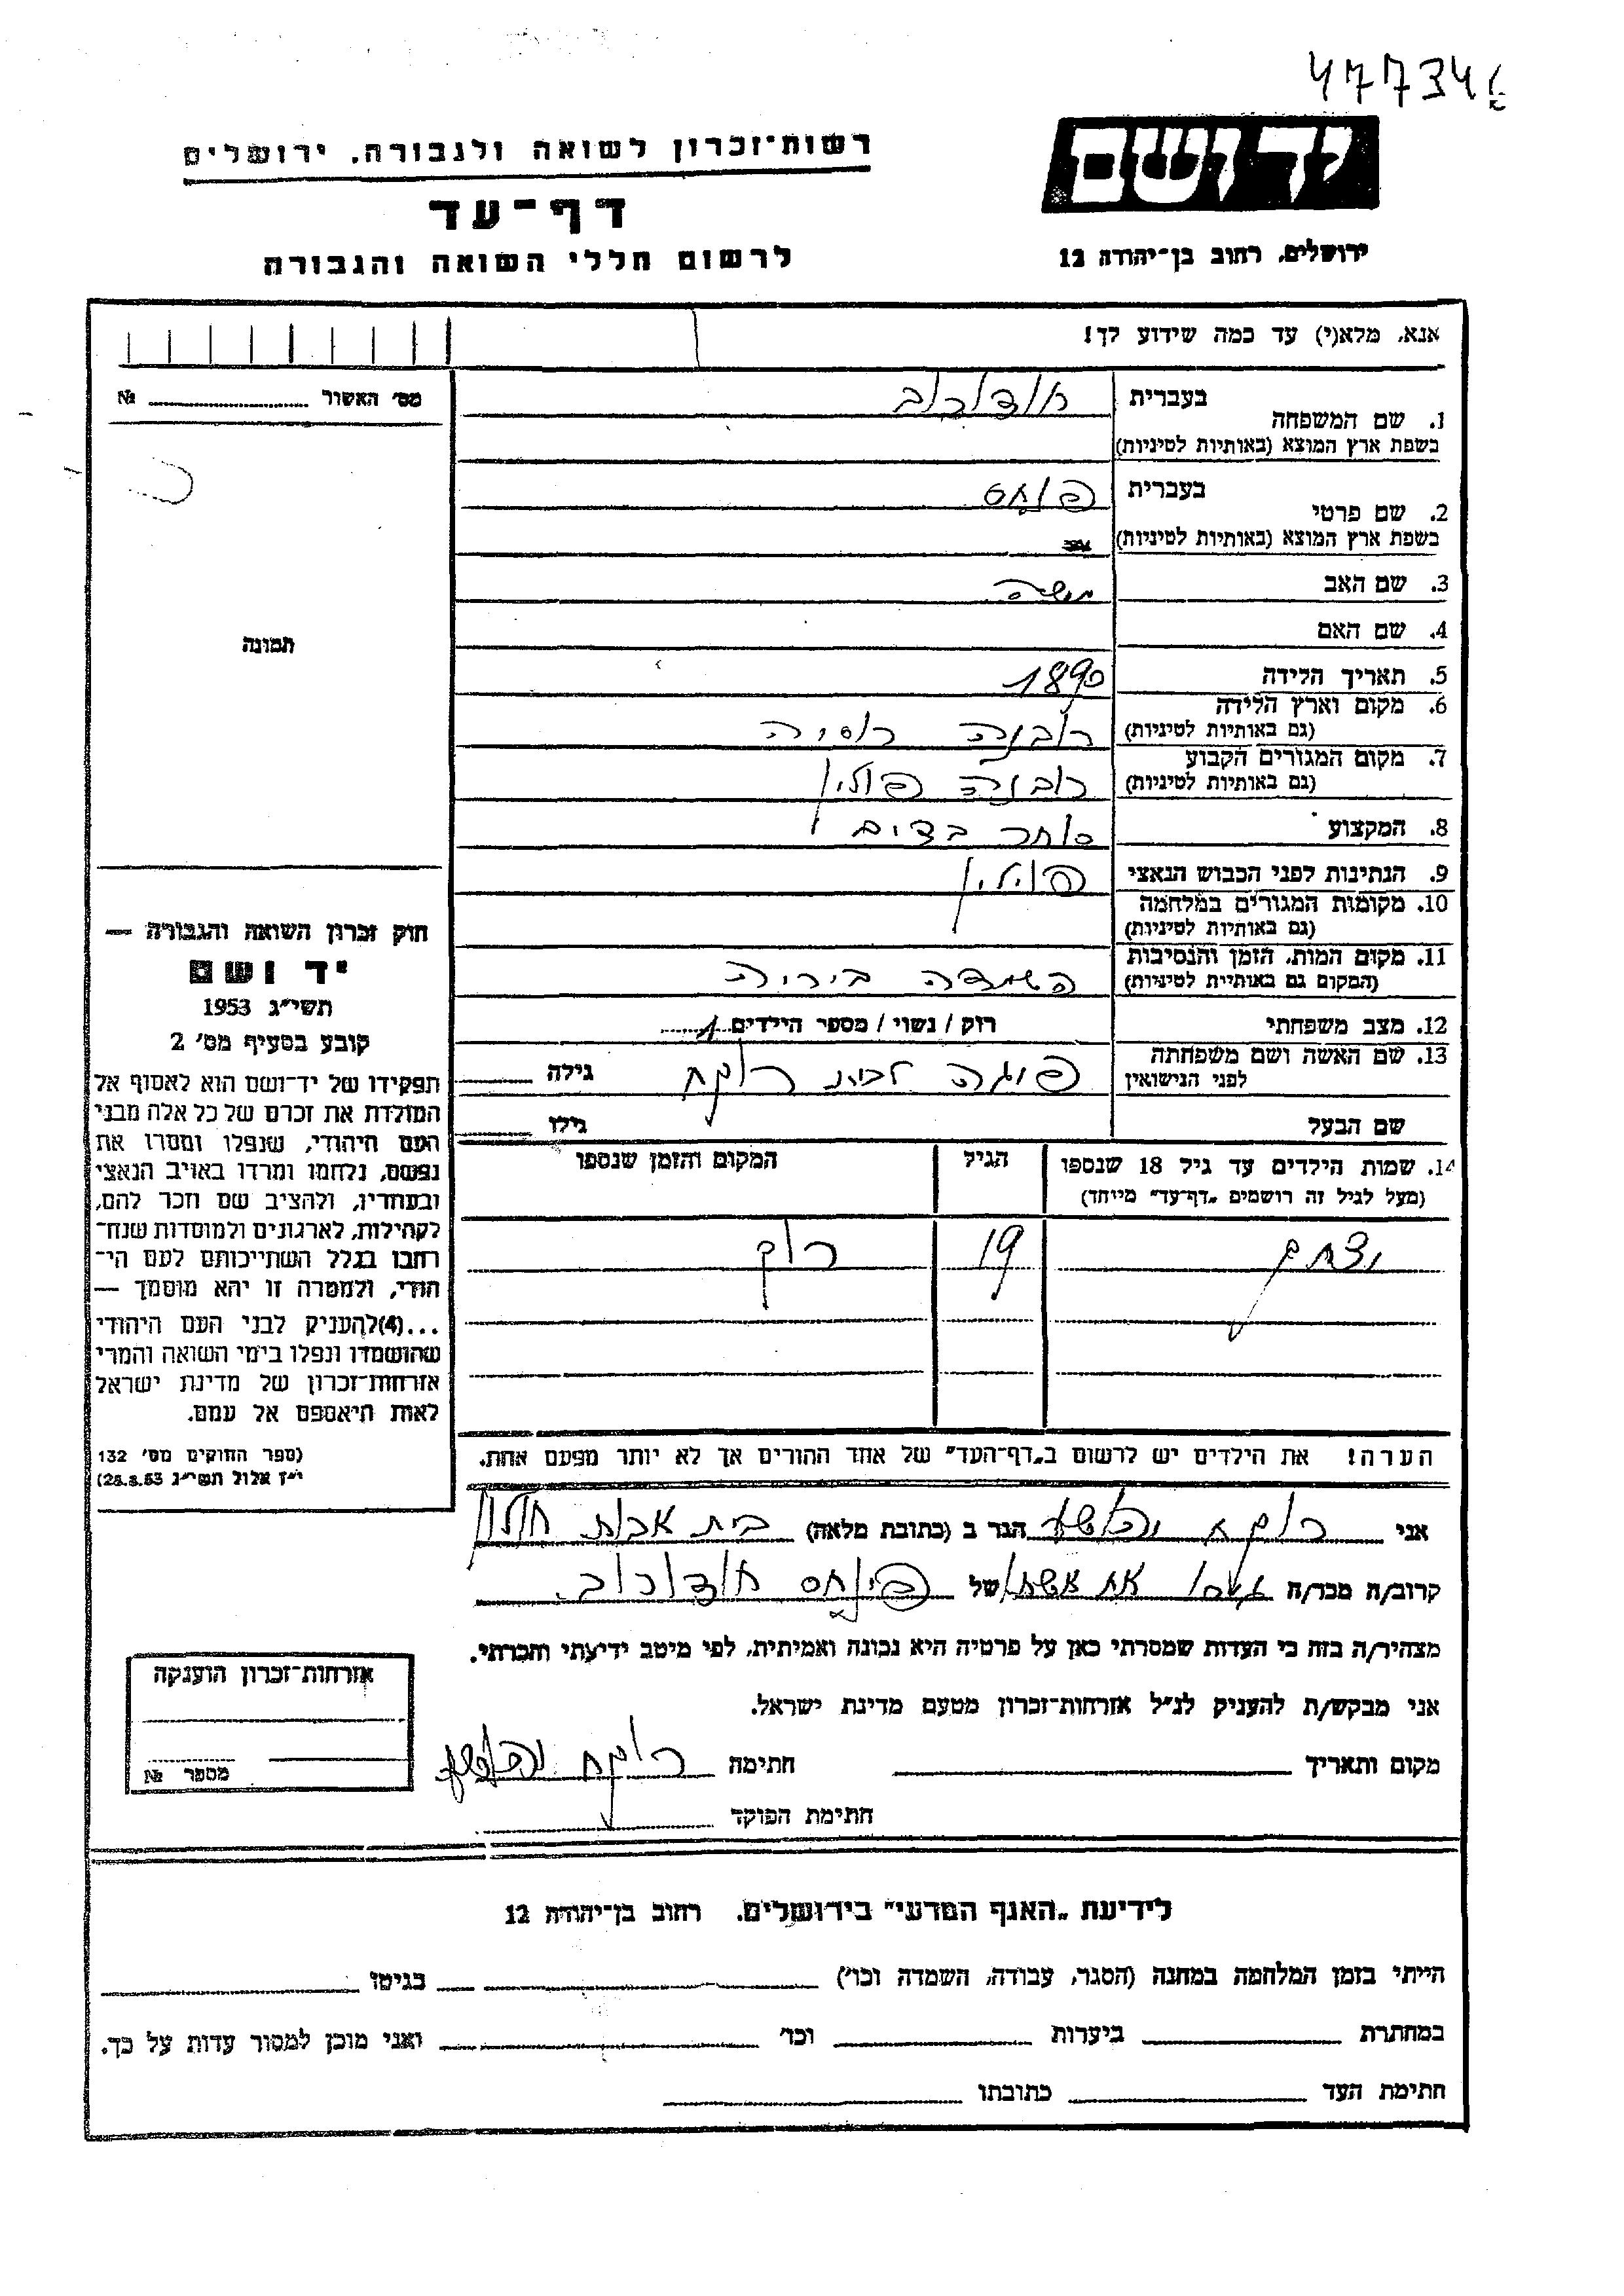 477346
יד ושם
רשות־זכרון לשואה ולגבורה, ירושלים
דף־עד
לרשום חללי השואה והגבורה
ירושלים, רחוב בן־יהודה 12
אנא, מלא(י) עד כמה שידוע לך!
מס׳ האשור №
1. שם המשפחה בעברית
בשפת ארץ המוצא (באותיות לטיניות)
2. שם פרטי בעברית פנחס
בשפת ארץ המוצא (באותיות לטיניות)
3. שם האב משה
4. שם האם
5. תאריך הלידה 1890
6. מקום וארץ הלידה רובנה רוסיה
(גם באותיות לטיניות)
7. מקום המגורים הקבוע רובנה פולין
(גם באותיות לטיניות)
8. המקצוע סוחר בצים
9. הנתינות לפני הכבוש הנאצי פולין
10. מקומות המגורים במלחמה
(גם באותיות לטיניות)
11. מקום המות, הזמן והנסיבות השמדה ביריה
(המקום גם באותיית לטיניות)
12. מצב משפחתי רוק / נשוי / מספר הילדים 1
13. שם האשה ושם משפחתה לפני הנישואין לבית רוקח גילה
שם הבעל גילו
תמונה
חוק זכרון השואה והגבורה —
יד ושם
תשי״ג 1953
קובע בסעיף מס׳ 2
תפקידו של יד־ושם הוא לאסוף אל
המולדת את זכרם של כל אלה מבני
העם היהודי, שנפלו ומסרו את
נפשם, נלחמו ומרדו באויב הנאצי
ובעוזריו, ולהציב שם וזכר להם,
לקהילות, לארגונים ולמוסדות שנח־
רבו בגלל השתייכותם לעם הי־
הודי, ולמטרה זו יהא מוסמך —
...(4)להעניק לבני העם היהודי
שהושמדו ונפלו בימי השואה והמרי
אזרחות־זכרון של מדינת ישראל
לאות היאספם אל עמם.
(ספר החוקים מס׳ 132
י״ז אלול תשי״ג 28.8.53)
14. שמות הילדים עד גיל 18 שנספו הגיל המקום והזמן שנספו
(מעל לגיל זה רושמים „דף־עד״ מיוחד)
יצחק 19
הערה! את הילדים יש לרשום ב„דף־העד״ של אחד ההורים אך לא יותר מפעם אחת.
אני רוקח יהושע הגר ב (כתובת מלאה) בית אבות חולון
קרוב/ה מכר/ה של פינחס
מצהיר/ה בזה כי העדות שמסרתי כאן על פרטיה היא נכונה ואמיתית, לפי מיטב ידיעתי והכרתי.
אני מבקש/ת להעניק לנ״ל אזרחות־זכרון מטעם מדינת ישראל.
מקום ותאריך חתימה רוקח יהושע
חתימת הפוקד
אזרחות־זכרון הוענקה
מספר №
לידיעת „האגף המדעי״ בירושלים, רחוב בן־יהודה 12
הייתי בזמן המלחמה במחנה (הסגר, עבודה, השמדה וכו׳) בגיטו
במחתרת ביערות וכו׳ ואני מוכן למסור עדות על כך.
חתימת העד כתובתו